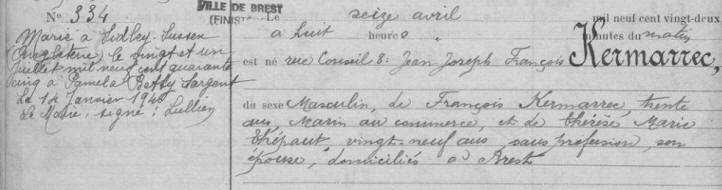 N° 334
Marié à Sidley, Sussex
(Angleterre) le vingt et un
juillet mil neuf cent quarante
cinq à Pamela Betty Sargent
Le 12 Janvier 1946
Le Maire, signé : Lullien
VILLE DE BREST
(FINIST
Le seize avril mil neuf cent vingt-deux
à huit heures " minutes du matin
est né rue Conseil 8: Jean Joseph François Kermarrec,
du sexe Masculin, de François Kermarrec, trente
ans, Marin au commerce, et de Thérèse Marie
Thépaut, vingt-neuf ans sans profession, son
épouse, domiciliés à Brest